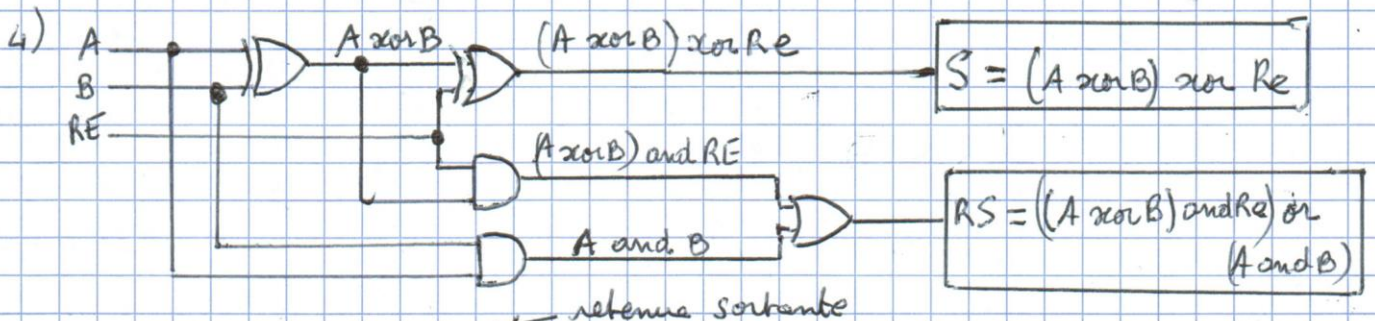 4) A
A xor B
(A xor B) xor Re
S = (A xor B) xor Re
B
RE
(A xor B) and RE
RS = ((A xor B) and Re) or
(A and B)
A and B
retenue sortante